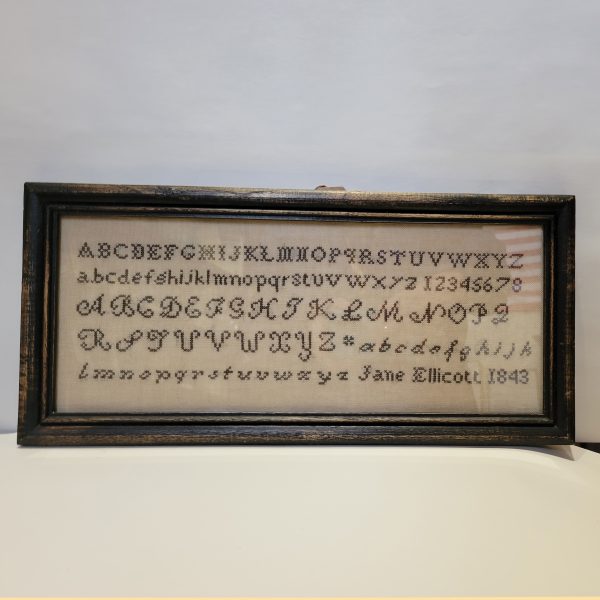 ABCDEFGHIJKLMNOPQRSTUVWXYZ
abcdefghijklmnopqrstuvwxyz 12345678
ABCDEFGHIJKLMNOPQ
RSTUVWXYZ * abcdefghijk
lmnopqrstuvwxyz Jane Ellicott 1843